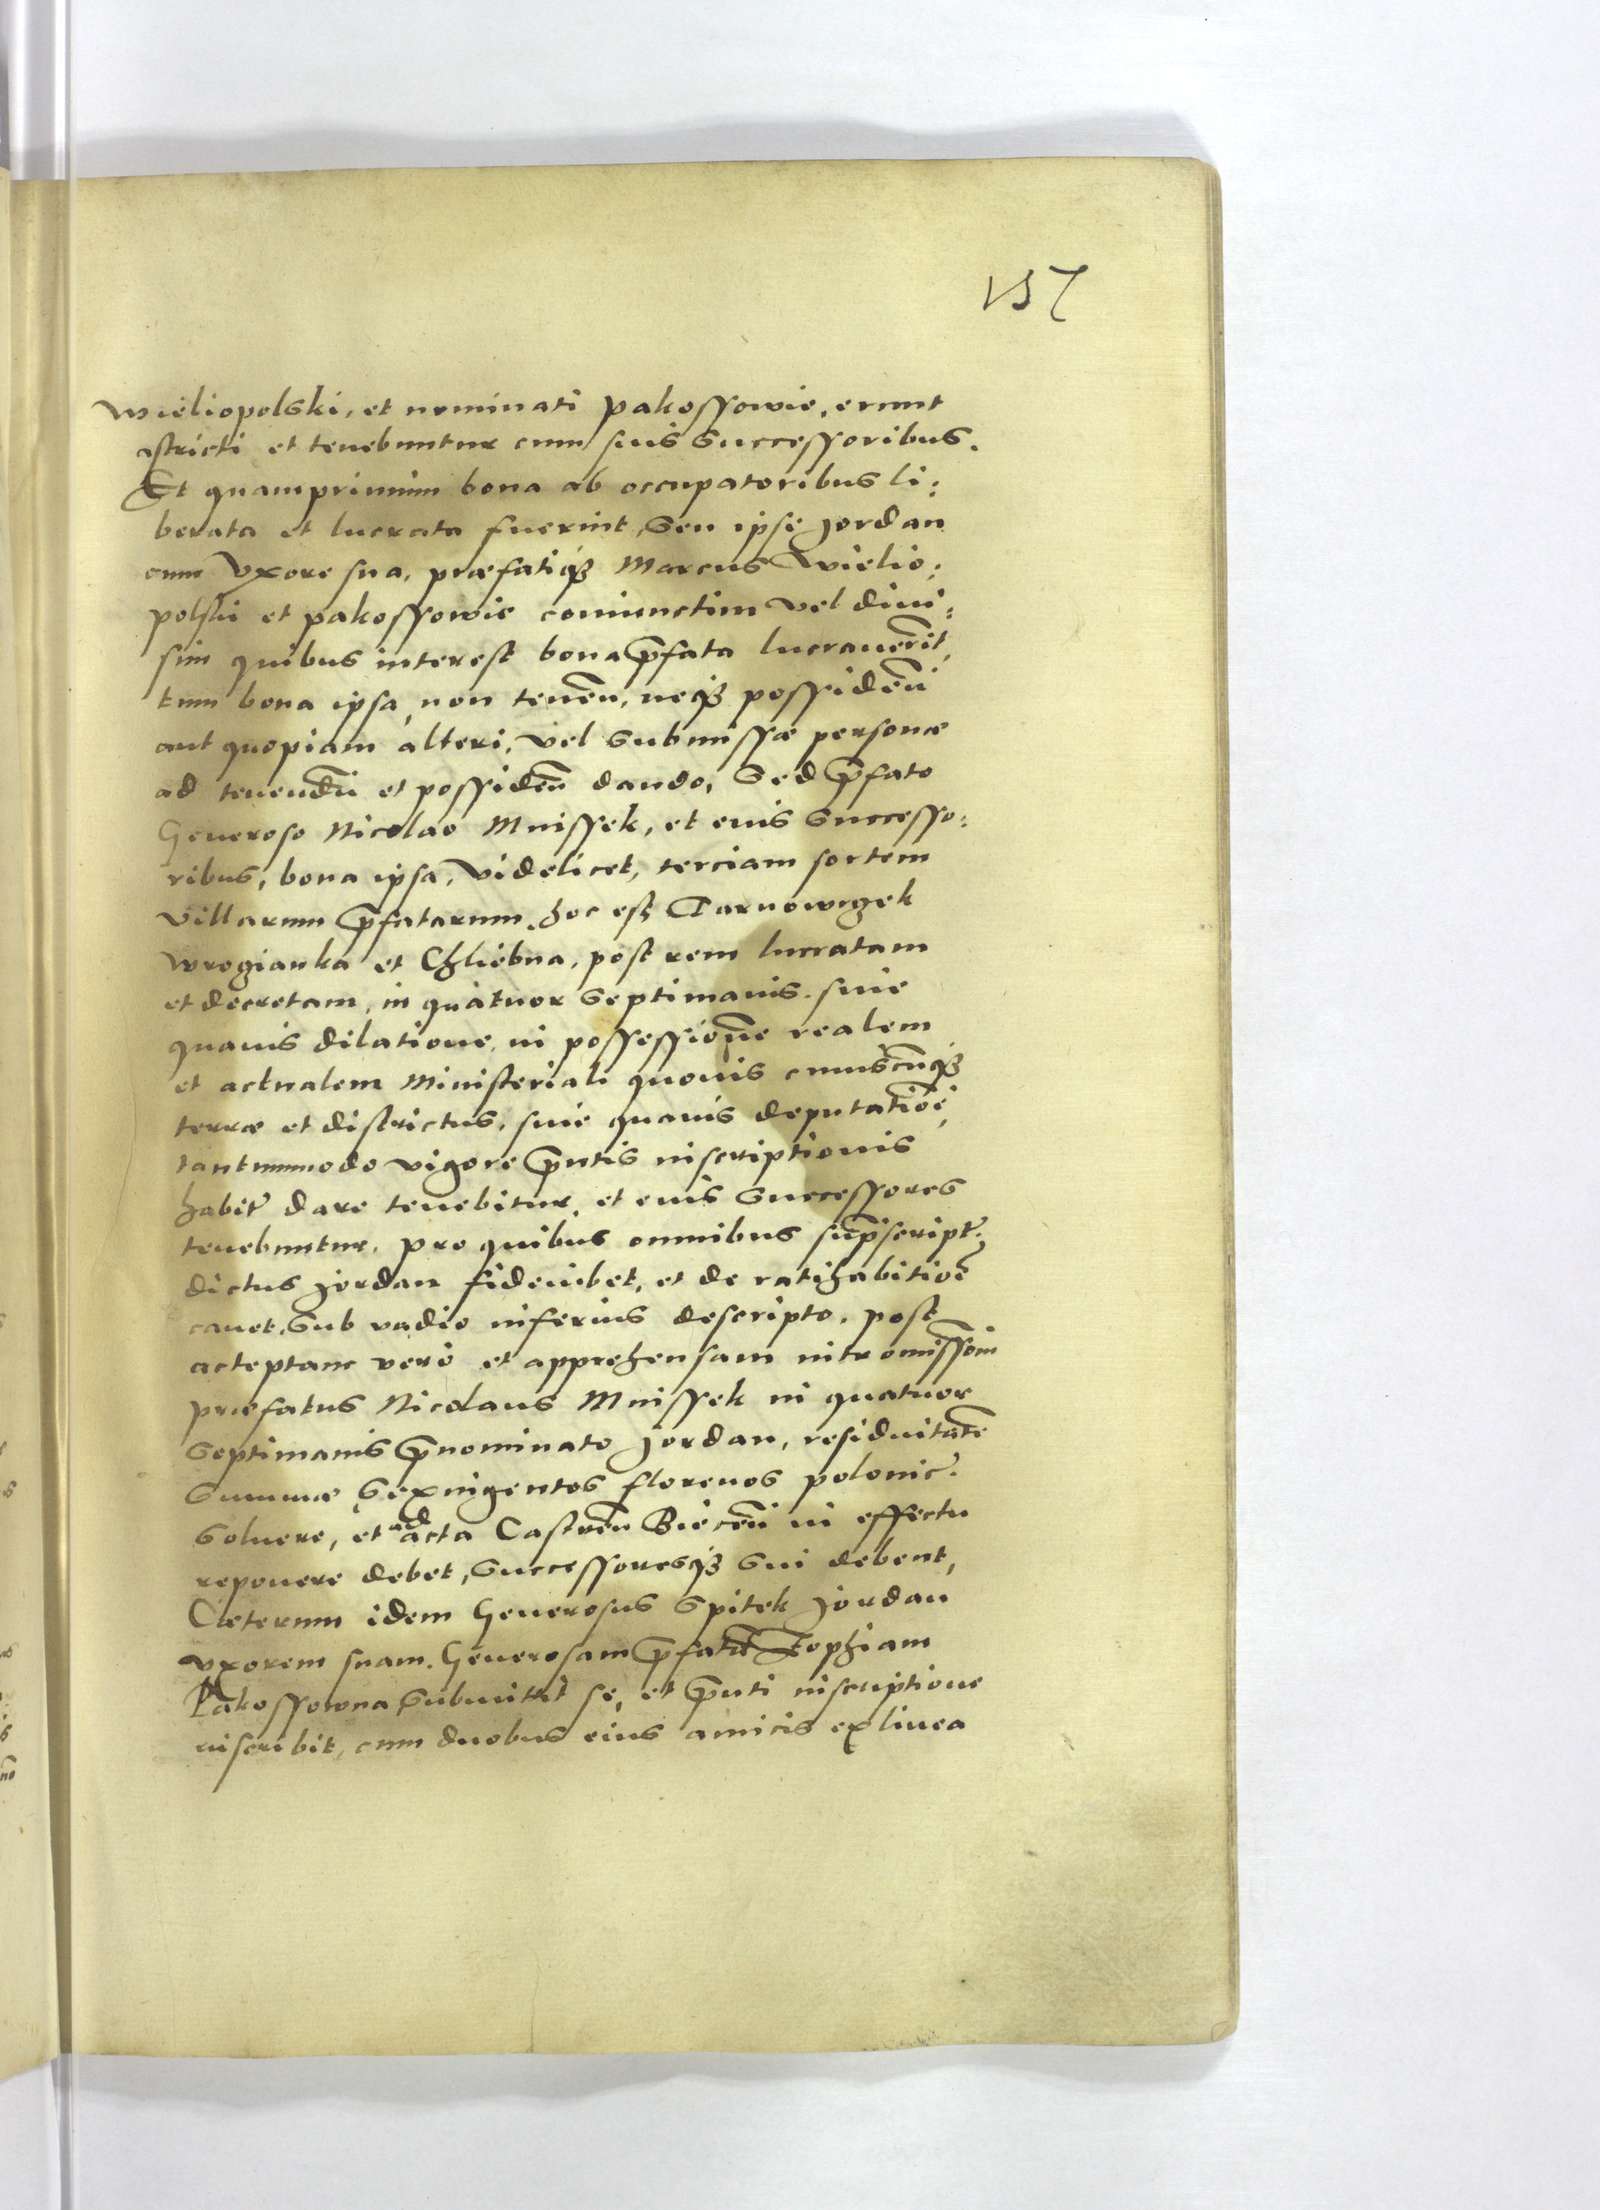 157
Wieliopolski, et nominati Pakossowie, erunt
astricti et tenebuntur cum suis Successoribus.
Et quamprimum bona ab occupatoribus li:
berata et lucrata fuerint, Seu ipse Jordan
cum Vxore sua, præfatiqȝ Marcus Wielio:
polski et pakossowie coniunctim vel diui:
sim quibus interest bona p̄fata lucrauerīt,
tum bona ipsa, non tenen̄, neqȝ possiden̄
aut quopiam alteri, vel Submissæ personæ
ad tenendū et possiden̄ dando, Sed p̄fato
Generoso Nicolao Mnissek, et eius Successo:
ribus, bona ipsa, Videlicet, terciam sortem
Villarum p̄fatarum, hoc est Tarnowyek
Wrozianka et Chliebna, post rem lucratam
et decretam, in quatuor Septimanis, sine
quauis dilatione, in possessionē realem
et actualem Ministeriali quouis cuiuscunqȝ
terræ et districtus, sine quauis deputatiōe,
tantummodo vigore p̄ntis inscriptionis
habit̃ dare tenebitur, et eius Successores
tenebuntur, pro quibus omnibus sup̄script̃.
dictus Jordan fideiubet, et de ratihabitiōe
cauet, Sub vadio inferius descripto, post
acceptam vero et apprehensam intromissōm
præfatus Nicolaus Mnissek in quatuor
Septimanis p̄nominato Jordan, residuitatē
Summæ Sexingentos florenos polonic̃.
Soluere, et ad acta Castren̄ Biecen̄ in effectu
reponere debet, Successoresqȝ Sui debent,
Cæterum idem Generosus Spitek Jordan
vxorem suam, Generosam p̄fatā Zophiam
Pakossowna Submittit se, et p̄nti inscriptione
inscribit, cum duobus eius amicis ex linea